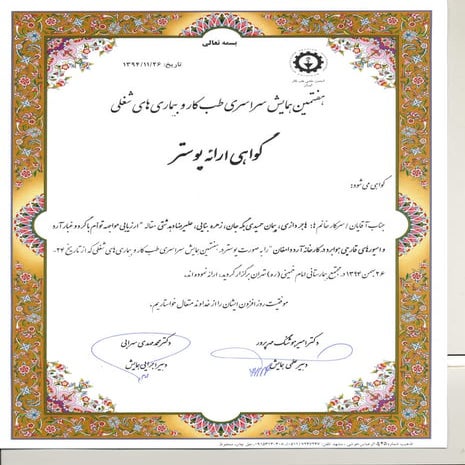 بسمه تعالی
تاریخ: ۱۳۹۴/۱۱/۲۶
هفتمین همایش سراسری طب کار و بیماری های شغلی
گواهی ارائه پوستر
گواهی می شود:
جناب آقایان / سرکار خانم ها: هاجر دازی، پیمان حمیدی یگه جان، زهره بنایی، علیرضا دهدشتی مقاله "ارزیابی مواجهه توأم با گرد و غبار آرد
و اسپورهای قارچی هوابرد در کارخانه آرد دامغان" را به صورت پوستر در هفتمین همایش سراسری طب کار و بیماری های شغلی که از تاریخ ۲۴-
۲۶ بهمن ۱۳۹۴ در مجتمع بیمارستانی امام خمینی (ره) تهران برگزار گردید، ارائه نموده اند.
موفقیت روز افزون ایشان را از خداوند متعال خواستاریم.
دکتر امیر هوشنگ مهرپرور
دکتر محمد مهدی سهرابی
دبیر علمی همایش
دبیر اجرایی همایش